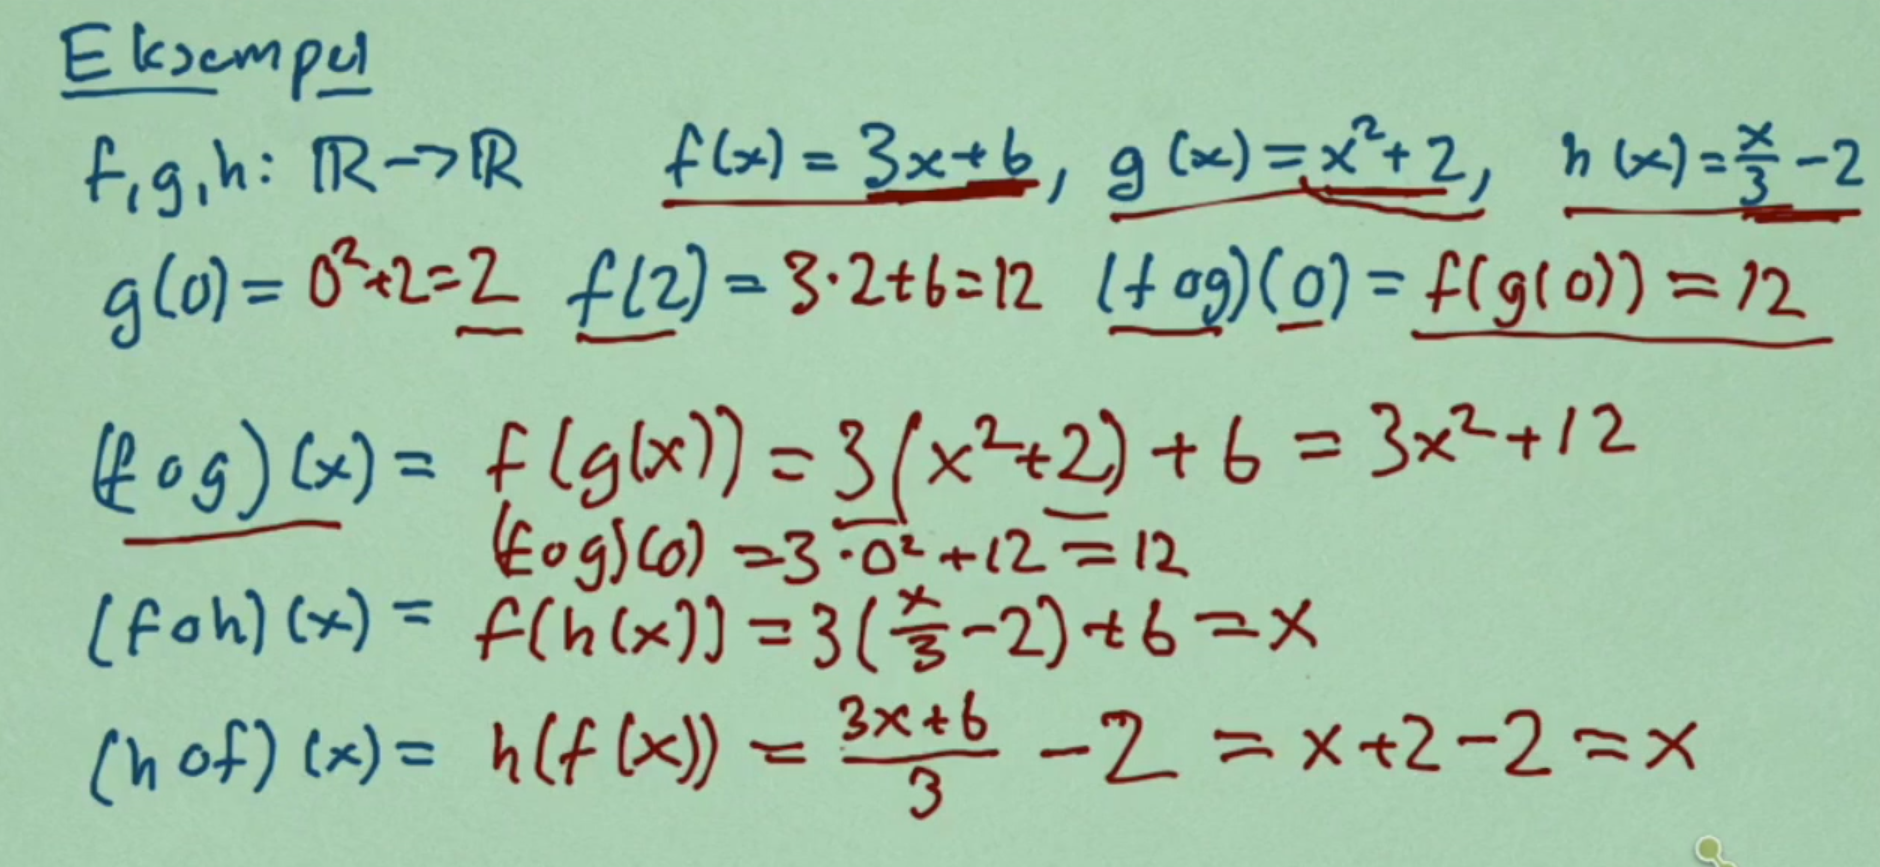 Eksempel
f,g,h: ℝ→ℝ f(x) = 3x+6, g(x) = x²+2, h(x) = x/3 - 2
g(0) = 0²+2 = 2 f(2) = 3·2+6 = 12 (f∘g)(0) = f(g(0)) = 12
(f∘g)(x) = f(g(x)) = 3(x²+2) + 6 = 3x²+12
(f∘g)(0) = 3·0²+12 = 12
(f∘h)(x) = f(h(x)) = 3(x/3 - 2) + 6 = x
(h∘f)(x) = h(f(x)) = (3x+6)/3 - 2 = x+2-2 = x